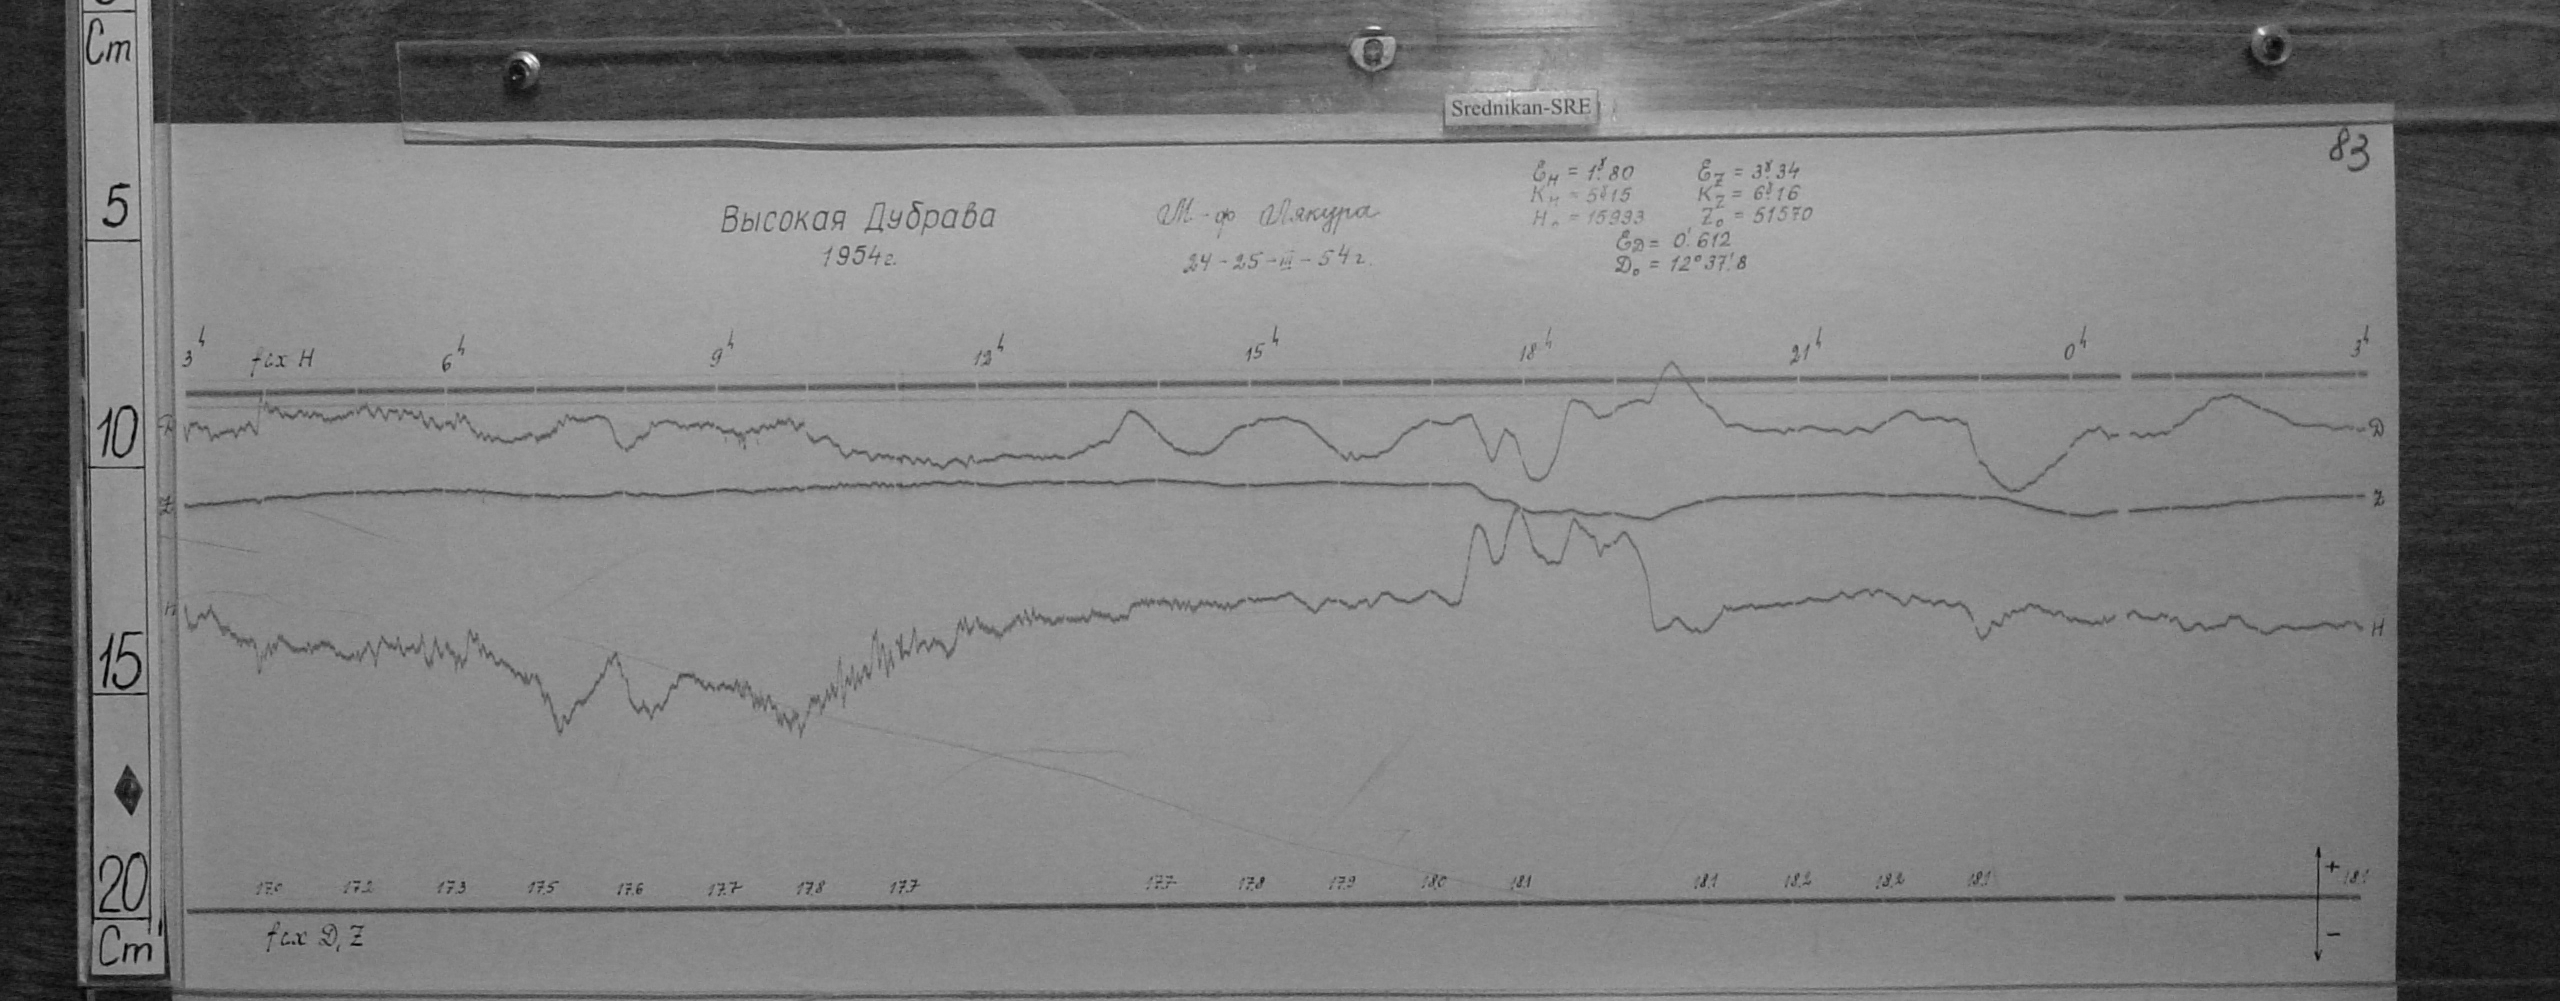 Cm
5
10
15
20
Cm
Srednikan-SRE
83
Высокая Дубрава
1954г.
М-ф Лякура
24-25-III-54г.
E_H = 1γ.80 E_Z = 3γ.34
K_H = 5γ.15 K_Z = 6γ.16
H₀ = 15993 Z₀ = 51570
E_D = 0'.612
D₀ = 12°37'.8
3h fax H 6h 9h 12h 15h 18h 21h 0h 3h
D D
Z Z
H H
17.0 17.2 17.3 17.5 17.6 17.7 17.8 17.7 17.7 17.8 17.9 18.0 18.1 18.1 18.2 18.2 18.1 18.1
+
fax D, Z
-